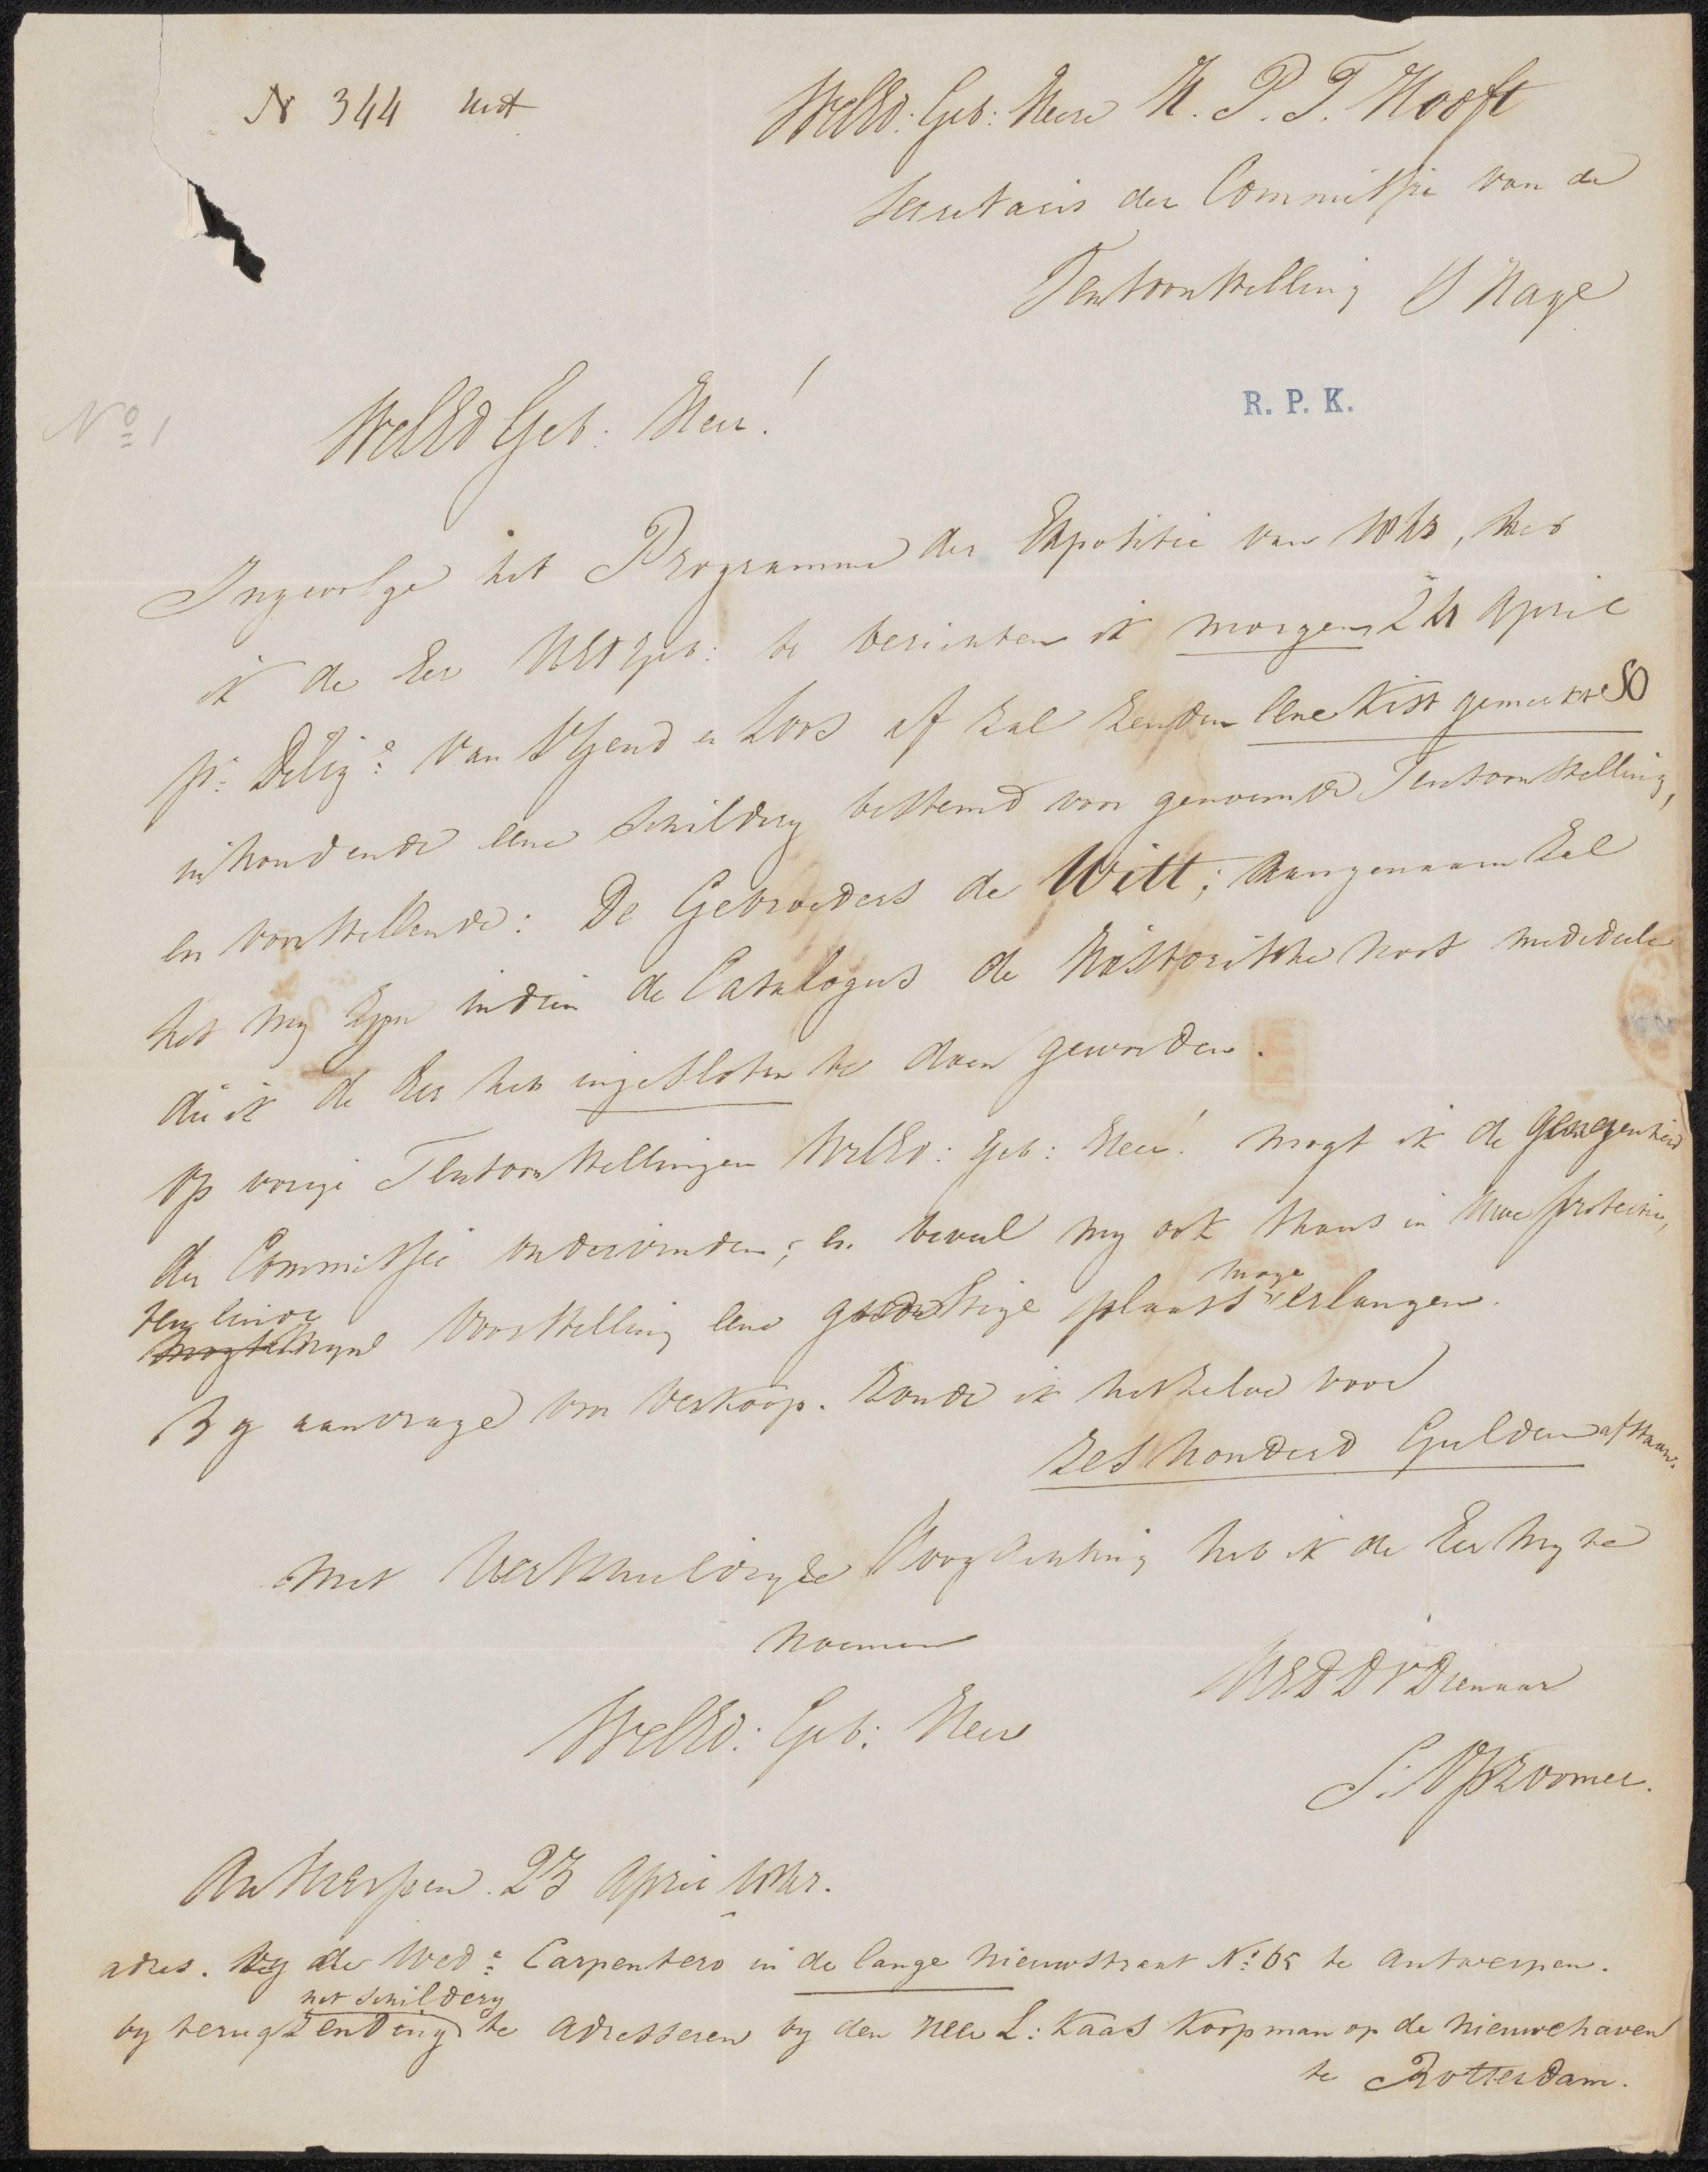 N 344 uit
WelEd: Geb: Heere H. P. T. Hooft
Secretaris der Commissie van de
Tentoonstelling S Hage
R. P. K.
No 1
WelEd Geb: Heer!
Ingevolge het Programma der Expositie van heb
ik de Eer UEd Geb: te berichten ik morgen 24 April
pr Delige van VGend en Loos af zal zenden eene kist gemerkt SO
inhoudende eene schildery bestemd voor genoemde Tentoonstelling,
en voorstellende: De Gebroeders de Witt; Aangenaam zal
het my zyn indien de Catalogus de Historische noot mededeele
die ik de Eer heb ingesloten te doen geworden.
Op vorige Tentoonstellingen WelEd: Geb: Heer! mogt ik de genegenheid
der Commissie ondervinden; en beveel my ook thans in Uwe protectie,
ten einde
myne Voorstelling eene gunstige plaats moge erlangen.
By aanvrage van Verkoop. Zoude ik hetzelve voor
zes honderd Gulden afstaan.
Met Verschuldigde Hoogachting heb ik de Eer my te
noemen
WelEd: Geb: Heer
UEDDVDienaar
S. Opzoomer.
Antwerpen. 23 April
adres. by de Wede Carpentero in de lange Nieuwstraat No 65 te Antwerpen.
het schildery
by terugzending te adresseren by den Heer L: Kaas Koopman op de Nieuwehaven
te Rotterdam.